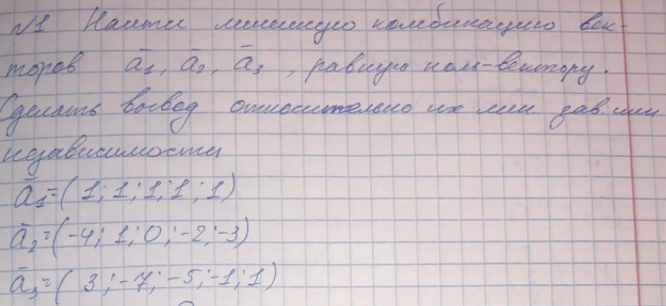 №1 Найти линейную комбинацию век-
торов ā₁, ā₂, ā₃, равную нуль-вектору.
Сделать вывод относительно их лин. зав. или
независимости
ā₁=(1; 1; 1; 1; 1)
ā₂=(-4; 1; 0; -2; -3)
ā₃=(3; -7; -5; -1; 1)